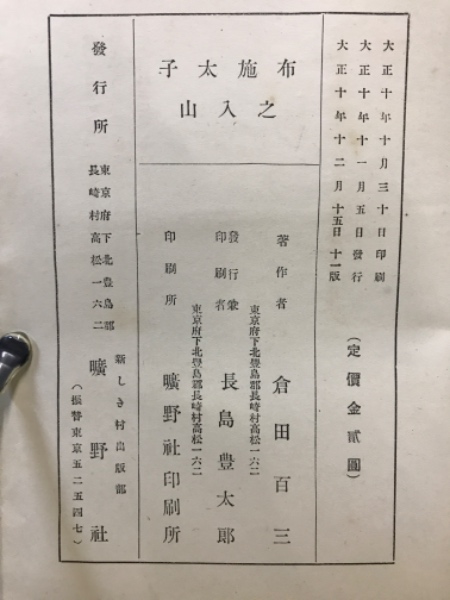 大正十年十月三十日印刷
大正十年十一月五日發行
大正十年十二月十五日十一版
(定價金貳圓)
布施太子
之入山
著作者
倉田百三
東京府下北豊島郡長崎村高松一六二
發行兼
印刷者
長島豊太郎
東京府下北豊島郡長崎村高松一六二
印刷所
曠野社印刷所
發行所
東京府下北豊島郡
長崎村高松一六二
新しき村出版部
曠野社
(振替東京五二五四七)